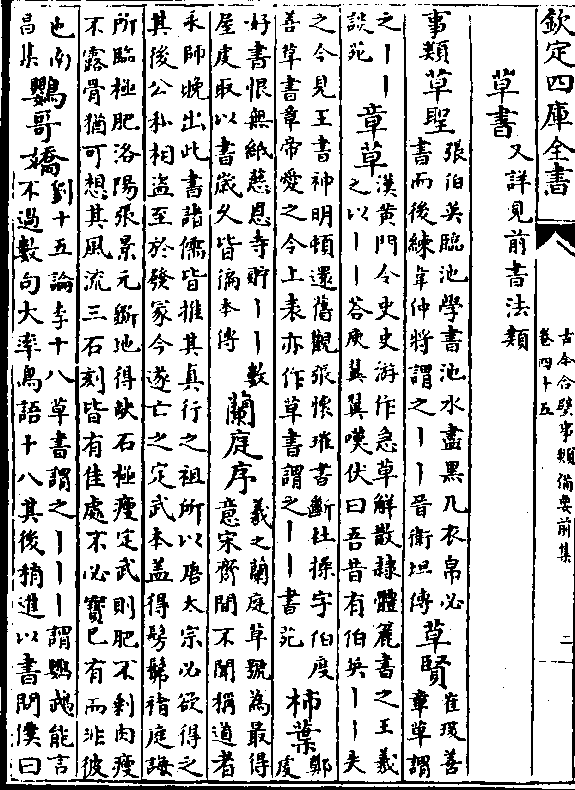 欽定四庫全書
古今合璧事類備要前集
卷四十五
二
草書 又詳見前書法類
事類 草聖 張伯英臨池學書池水盡黑凡衣帛必
書而後練韋仲將謂之——晉衛恒傳 草賢 崔瑗善
章草謂
之——
談苑 章草 漢黃門令史史游作急草解散隸體麄書之王羲
之以——荅庾翼翼嘆伏曰吾昔有伯英——夫
之今見王書神明頓還舊觀張懷瓘書斷杜操字伯度
善草書章帝愛之今上表亦作草書謂之——書苑 柿葉 鄭
虔
好書恨無紙慈恩寺貯——數
屋虔取以書歲久皆徧本傳 蘭庭序 羲之蘭庭草號為最得
意宋齊間不聞稱道者
永師晚出此書諸儒皆推其真行之祖所以唐太宗必欲得之
其後公私相盜至於發冢今遂亡之定武本蓋得髣髴褚庭誨
所臨極肥洛陽張景元斸地得缺石極瘦定武則肥不剩肉瘦
不露骨猶可想其風流三石刻皆有佳處不必寶已有而非彼
也南
昌集 鸚哥嬌 劉十五論李十八草書謂之———謂鸚鵡能言
不過數句大率鳥語十八其後稍進以書問僕曰